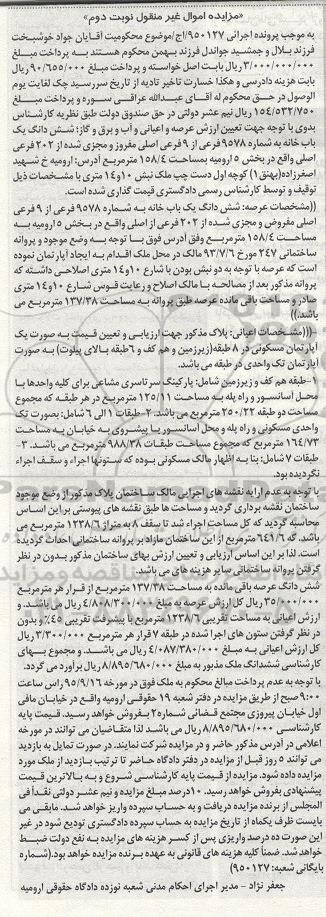 «مزایده اموال غیر منقول نوبت دوم»
به موجب پرونده اجرائی ۹۵۰۱۲۷/اج/موضوع محکومیت آقایان جواد خوشبخت
فرزند بلال و جمشید جواندل فرزند بهمن محکوم هستند به پرداخت مبلغ
۳/۰۰۰/۰۰۰/۰۰۰ ریال بابت اصل خواسته و پرداخت مبلغ ۹۰/۶۵۵/۰۰۰ ریال
بابت هزینه دادرسی و هکذا خسارت تاخیر تادیه از تاریخ سررسید چک لغایت یوم
الوصول در حق محکوم له آقای عبدالله عراقی سوره و پرداخت مبلغ
۱۵۴/۵۳۲/۷۵۰ ریال نیم عشر دولتی در حق صندوق دولت طبق نظریه کارشناس
بدوی با توجه جهت تعیین ارزش عرصه و اعیانی و آب و برق و گاز؛ شش دانگ یک
باب خانه به شماره ۹۵۷۸ فرعی از ۹ فرعی اصلی مفروز و مجزی شده از ۲۰۲ فرعی
اصلی واقع در بخش ۵ ارومیه بمساحت ۱۵۸/۴ مترمربع آدرس: ارومیه خ شهید
اصغرزاده (بهنق۱) کوچه اول دست چپ ملک نبش ۱۰و۱۴ متری با مشخصات ذیل
توقیف و توسط کارشناس رسمی دادگستری قیمت گذاری شده است.
((مشخصات عرصه: شش دانگ یک باب خانه به شماره ۹۵۷۸ فرعی از ۹ فرعی
اصلی مفروض و مجزی شده از ۲۰۲ فرعی از اصلی واقع در بخش ۵ ارومیه به
مساحت ۱۵۸/۴ مترمربع وفق آدرس فوق با توجه به وضع موجود و پروانه
ساختمانی ۲۴۷ مورخ ۹۳/۷/۶ مالک در محل ملک اقدام به ایجاد آپارتمان نموده
است که عرصه با توجه به دو نبش بودن با شارع ۱۰و۱۴ متری اصلاحی داشته که
پروانه مذکور بعد از مصالحه با مالک اصلاح و رعایت قوس شارع ۱۰و۱۴ متری
صادر و مساحت باقی مانده عرصه طبق پروانه به مساحت ۱۳۷/۳۸ مترمربع می
باشد.))
(((مشخصات اعیانی: پلاک مذکور جهت ارزیابی و تعیین قیمت به صورت یک
آپارتمان مسکونی در ۸ طبقه(زیرزمین و هم کف و ۶طبقه بالای پیلوت) به صورت
آپارتمان تک واحدی در طبقه می باشد.
۱-طبقه هم کف و زیرزمین شامل: پارکینگ سرتاسری مشاعی برای کلیه واحدها با
محل آسانسور و راه پله به مساحت ۱۲۵/۱۱ مترمربع در هر طبقه که مجموع
مساحت دو طبقه ۲۵۰/۲۲ مترمربع می باشد. ۲-طبقات ۱ الی ۶ شامل: بصورت تک
واحدی مسکونی و راه پله و محل آسانسور با پیشروی به خیابان به مساحت
۱۶۴/۷۳ مترمربع که مجموع مساحت طبقات ۹۸۸/۳۸ مترمربع می باشد. ۳-
طبقات ۷ شامل: بنا به اظهار مالک مسکونی بوده که ستونها اجراء و سقف اجراء
نگردیده بود.
با توجه به عدم ارایه نقشه های اجرایی مالک ساختمان پلاک مذکور از وضع موجود
ساختمان نقشه برداری گردید و مساحت ها طبق نقشه های پیوستی بر این اساس
محاسبه گردید که کل مساحت اجراء شد تا سقف ۸ به متراژ ۱۲۳۸/۶ مترمربع می
باشد. که ۶۴۱/۶ مترمربع از این ساختمان مازاد بر پروانه ساختمانی احداث گردیده
است. لذا بر این اساس ارزیابی و تعیین ارزش بهای ساختمان مذکور بدون در نظر
گرفتن پروانه ساختمانی سایر هزینه های می باشد.
شش دانگ عرصه باقی مانده به مساحت ۱۳۷/۳۸ مترمربع از قرار هر مترمربع
۳۵/۰۰۰/۰۰۰ ریال کل ارزش عرصه به مبلغ ۴/۸۰۸/۳۰۰/۰۰۰ ریال می باشد. و
ارزش اعیانی به مساحت تقریبی ۱۲۳۸/۶ مترمربع با پیشرفت تقریبی ۴۵٪ و بدون
در نظر گرفتن ستون های اجرا شده در طبقه ۷ قرار هر مترمربع ۳/۳۰۰/۰۰۰ ریال
کل ارزش اعیانی به مبلغ ۴/۰۸۷/۳۸۰/۰۰۰ ریال می باشد. و مجموع بهای
کارشناسی ششدانگ ملک مذبور به مبلغ ۸/۸۹۵/۶۸۰/۰۰۰ ریال برآورد می گردد.
با توجه به عدم پرداخت مبالغ محکوم به ملک فوق در مورخه ۹۵/۹/۱۶ راس ساعت
۹:۰۰ صبح از طریق مزایده در دفتر شعبه ۱۹ حقوقی ارومیه واقع در خیابان مافی
اول خیابان پیروزی مجتمع قضائی شماره۲ بفروش خواهد رسید. قیمت پایه
کارشناسی ۸/۸۹۵/۶۸۰/۰۰۰ ریال می باشد لذا متقاضیان می توانند در مورخه
اعلامی در آدرس مذکور حاضر و در مزایده شرکت نمایند. در صورت تمایل به بازدید
می توانند ۵ روز قبل از مزایده در دفتر دادگاه حاضر تا ترتیب بازدید از ملک مورد
مزایده داده شود. مزایده از قیمت پایه کارشناسی شروع و به بالاترین قیمت
پیشنهادی بفروش خواهد رسید. ۱۰درصد مبلغ مزایده و نیم عشر دولتی نقداً فی
المجلس از برنده مزایده دریافت و به حساب سپرده واریز خواهد شد. مابقی می
بایست ظرف یکماه از تاریخ مزایده به حساب سپرده دادگستری تودیع شود در غیر
این صورت ده درصد واریزی پس از کسر هزینه های مزایده به نفع دولت ضبط
خواهد شد. ضمناً کلیه هزینه های قانونی به عهده برنده مزایده خواهد بود.(شماره
بایگانی شعبه: ۹۵۰۱۲۷)
جعفر نژاد - مدیر اجرای احکام مدنی شعبه نوزده دادگاه حقوقی ارومیه